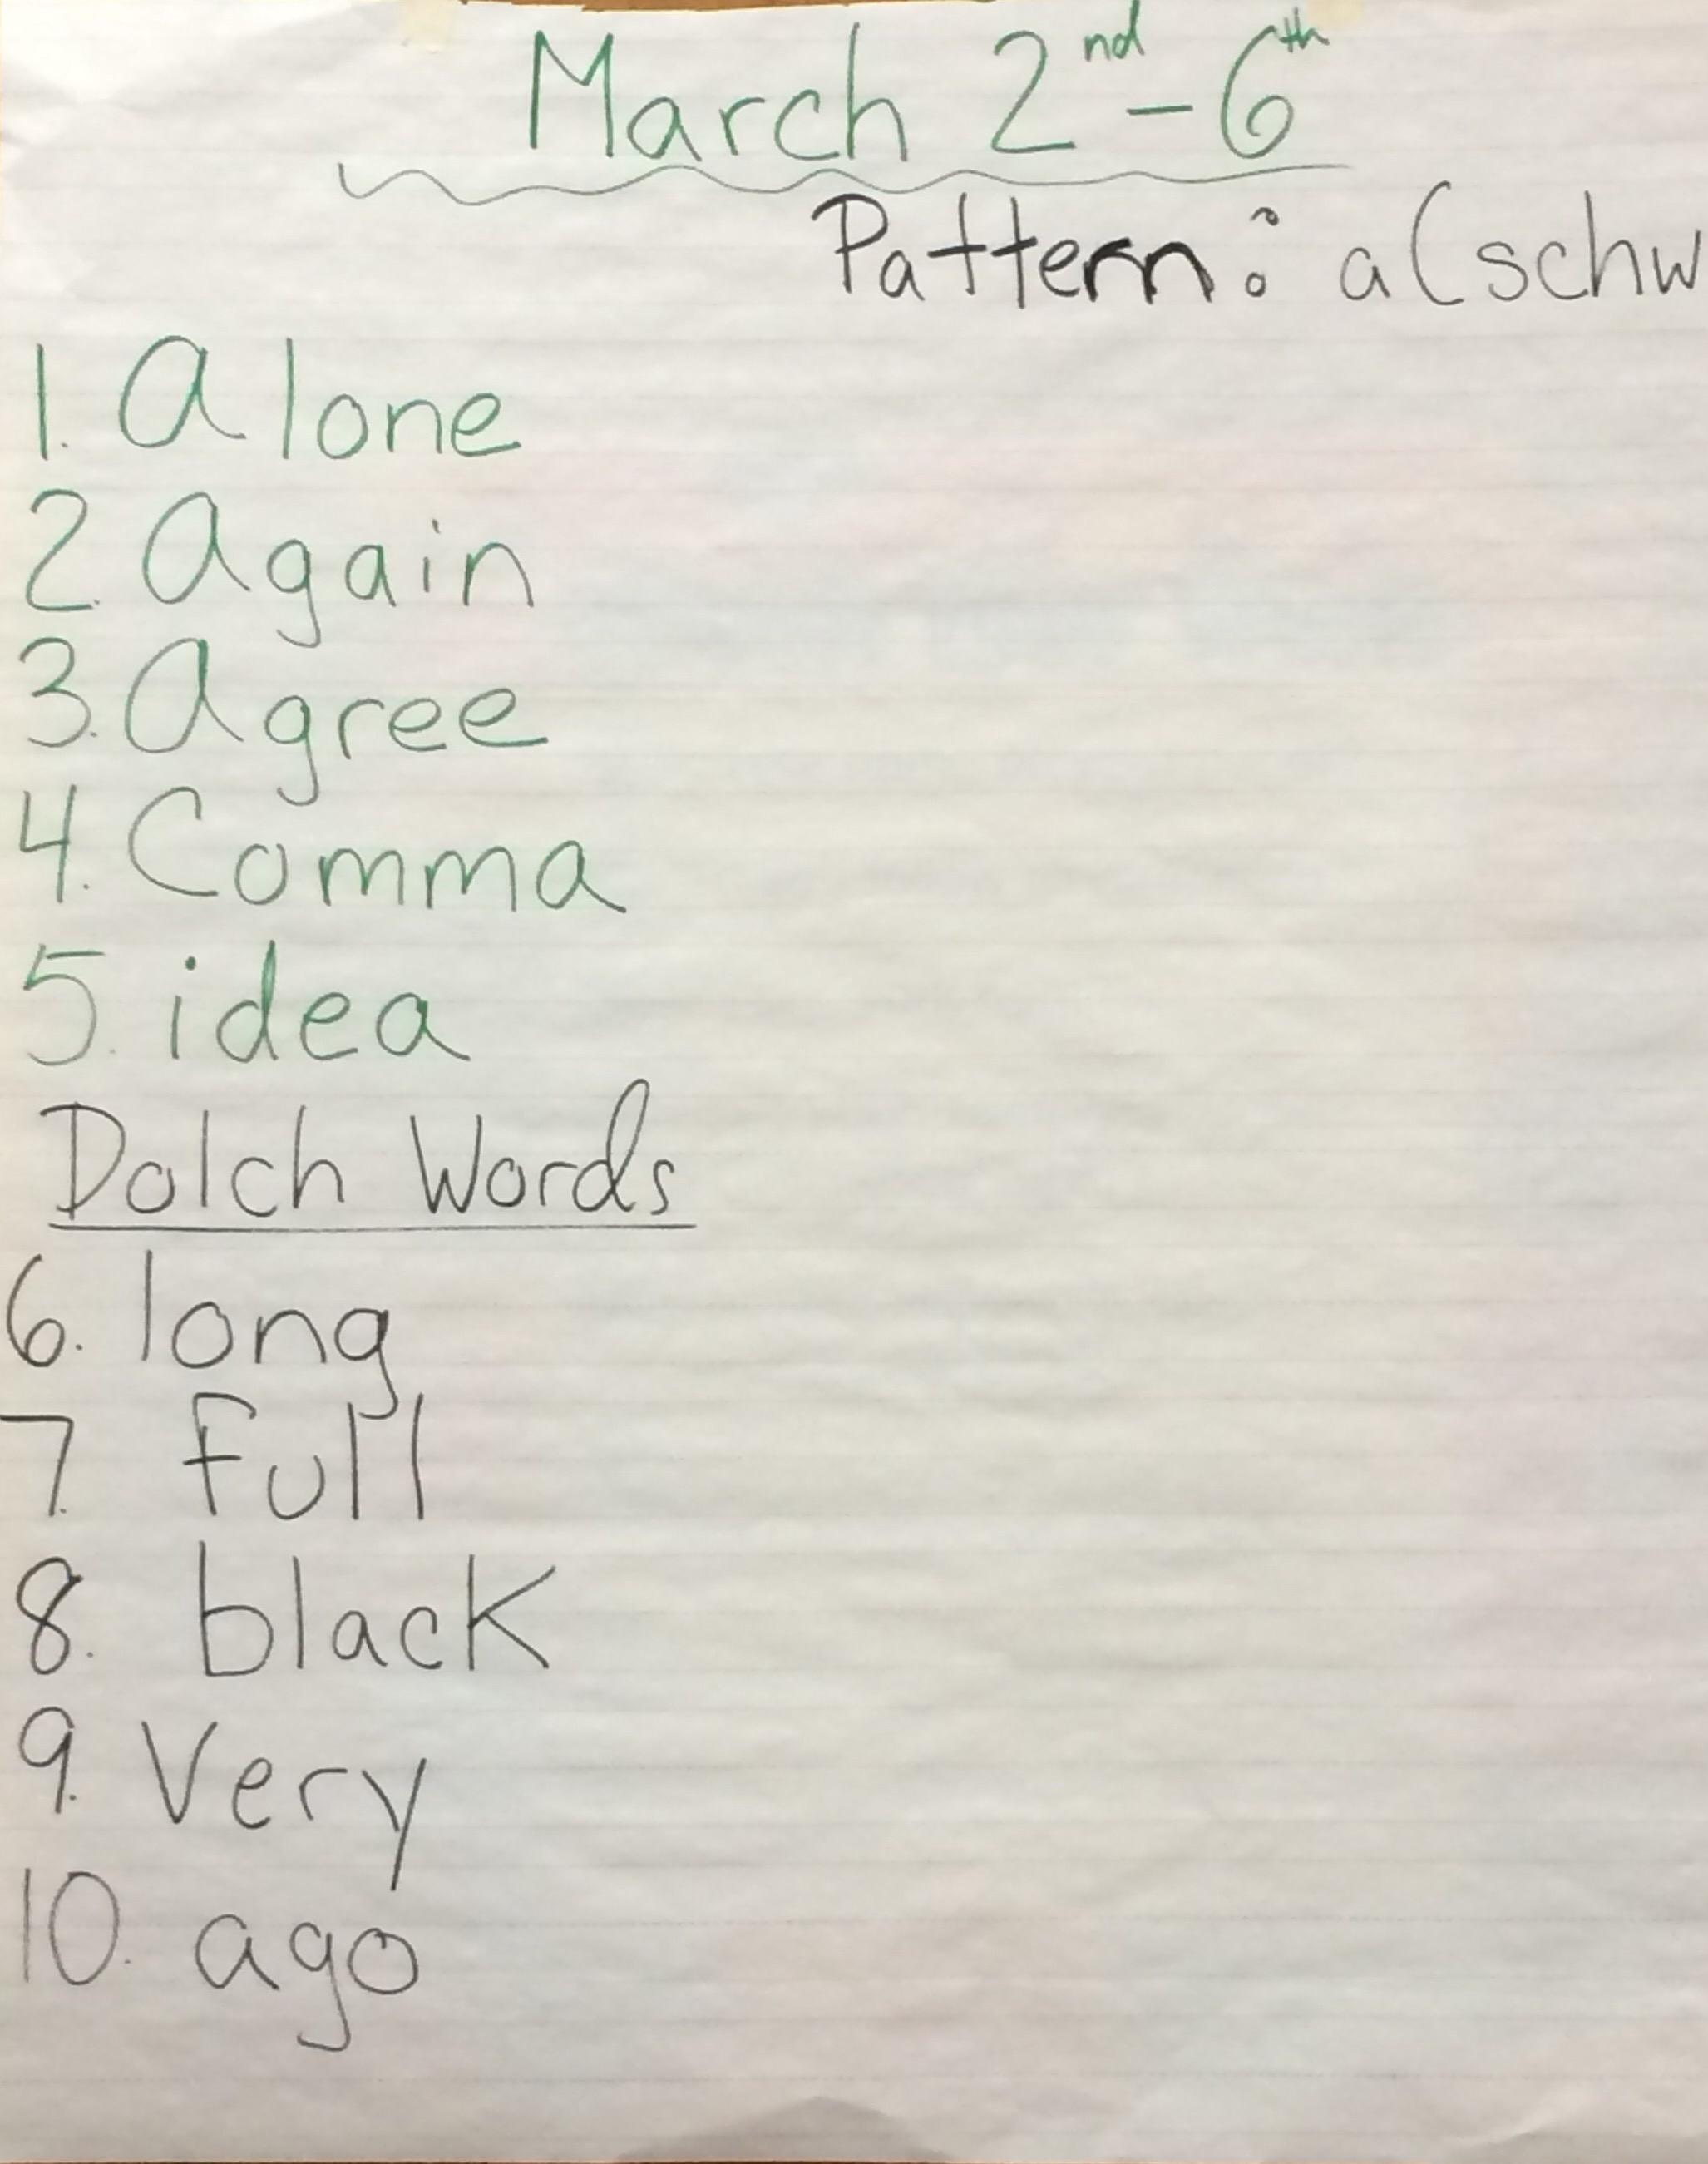 March 2nd - 6th
Pattern: a (schw
1. Alone
2. Again
3. Agree
4. Comma
5. idea
Dolch Words
6. long
7. full
8. black
9. Very
10. ago